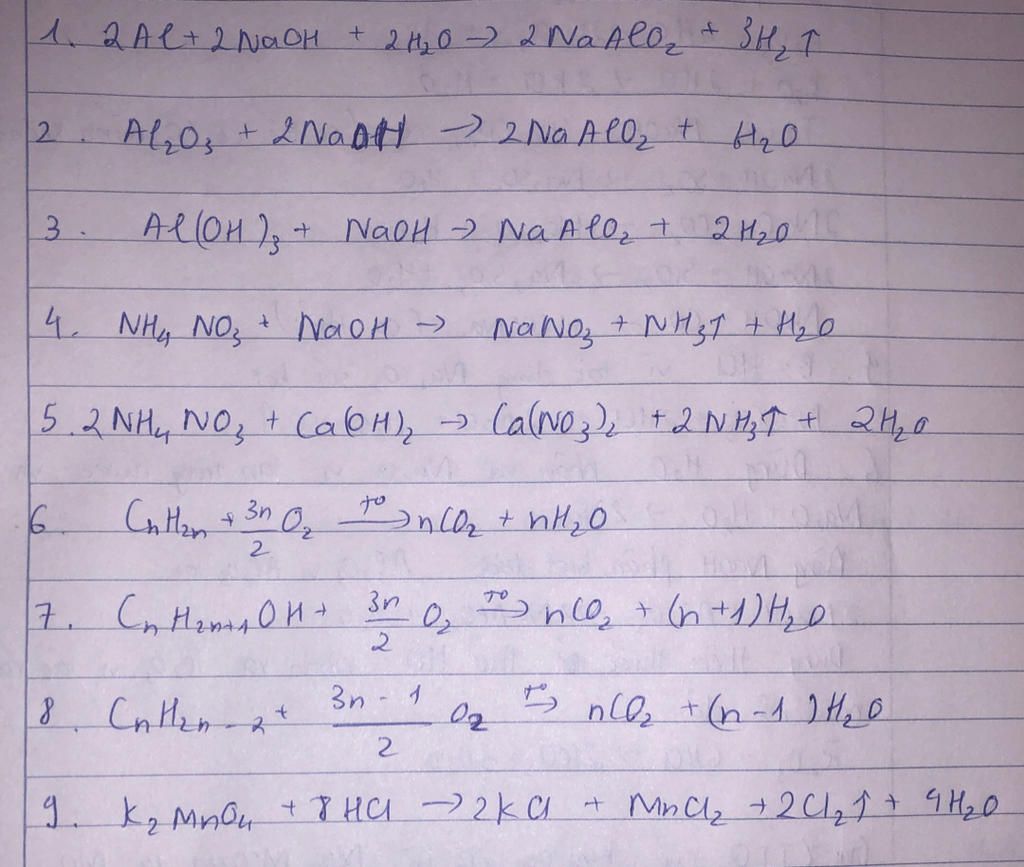 1. 2Al + 2NaOH + 2H₂O → 2NaAlO₂ + 3H₂↑
2. Al₂O₃ + 2NaOH → 2NaAlO₂ + H₂O
3. Al(OH)₃ + NaOH → NaAlO₂ + 2H₂O
4. NH₄NO₃ + NaOH → NaNO₃ + NH₃↑ + H₂O
5. 2NH₄NO₃ + Ca(OH)₂ → Ca(NO₃)₂ + 2NH₃↑ + 2H₂O
6. CnH2n + 3n/2 O₂ →(t⁰) nCO₂ + nH₂O
7. CnH2n+1OH + 3n/2 O₂ →(t⁰) nCO₂ + (n+1)H₂O
8. CnH2n-2 + (3n-1)/2 O₂ →(t⁰) nCO₂ + (n-1)H₂O
9. K₂MnO₄ + 8HCl → 2KCl + MnCl₂ + 2Cl₂↑ + 4H₂O